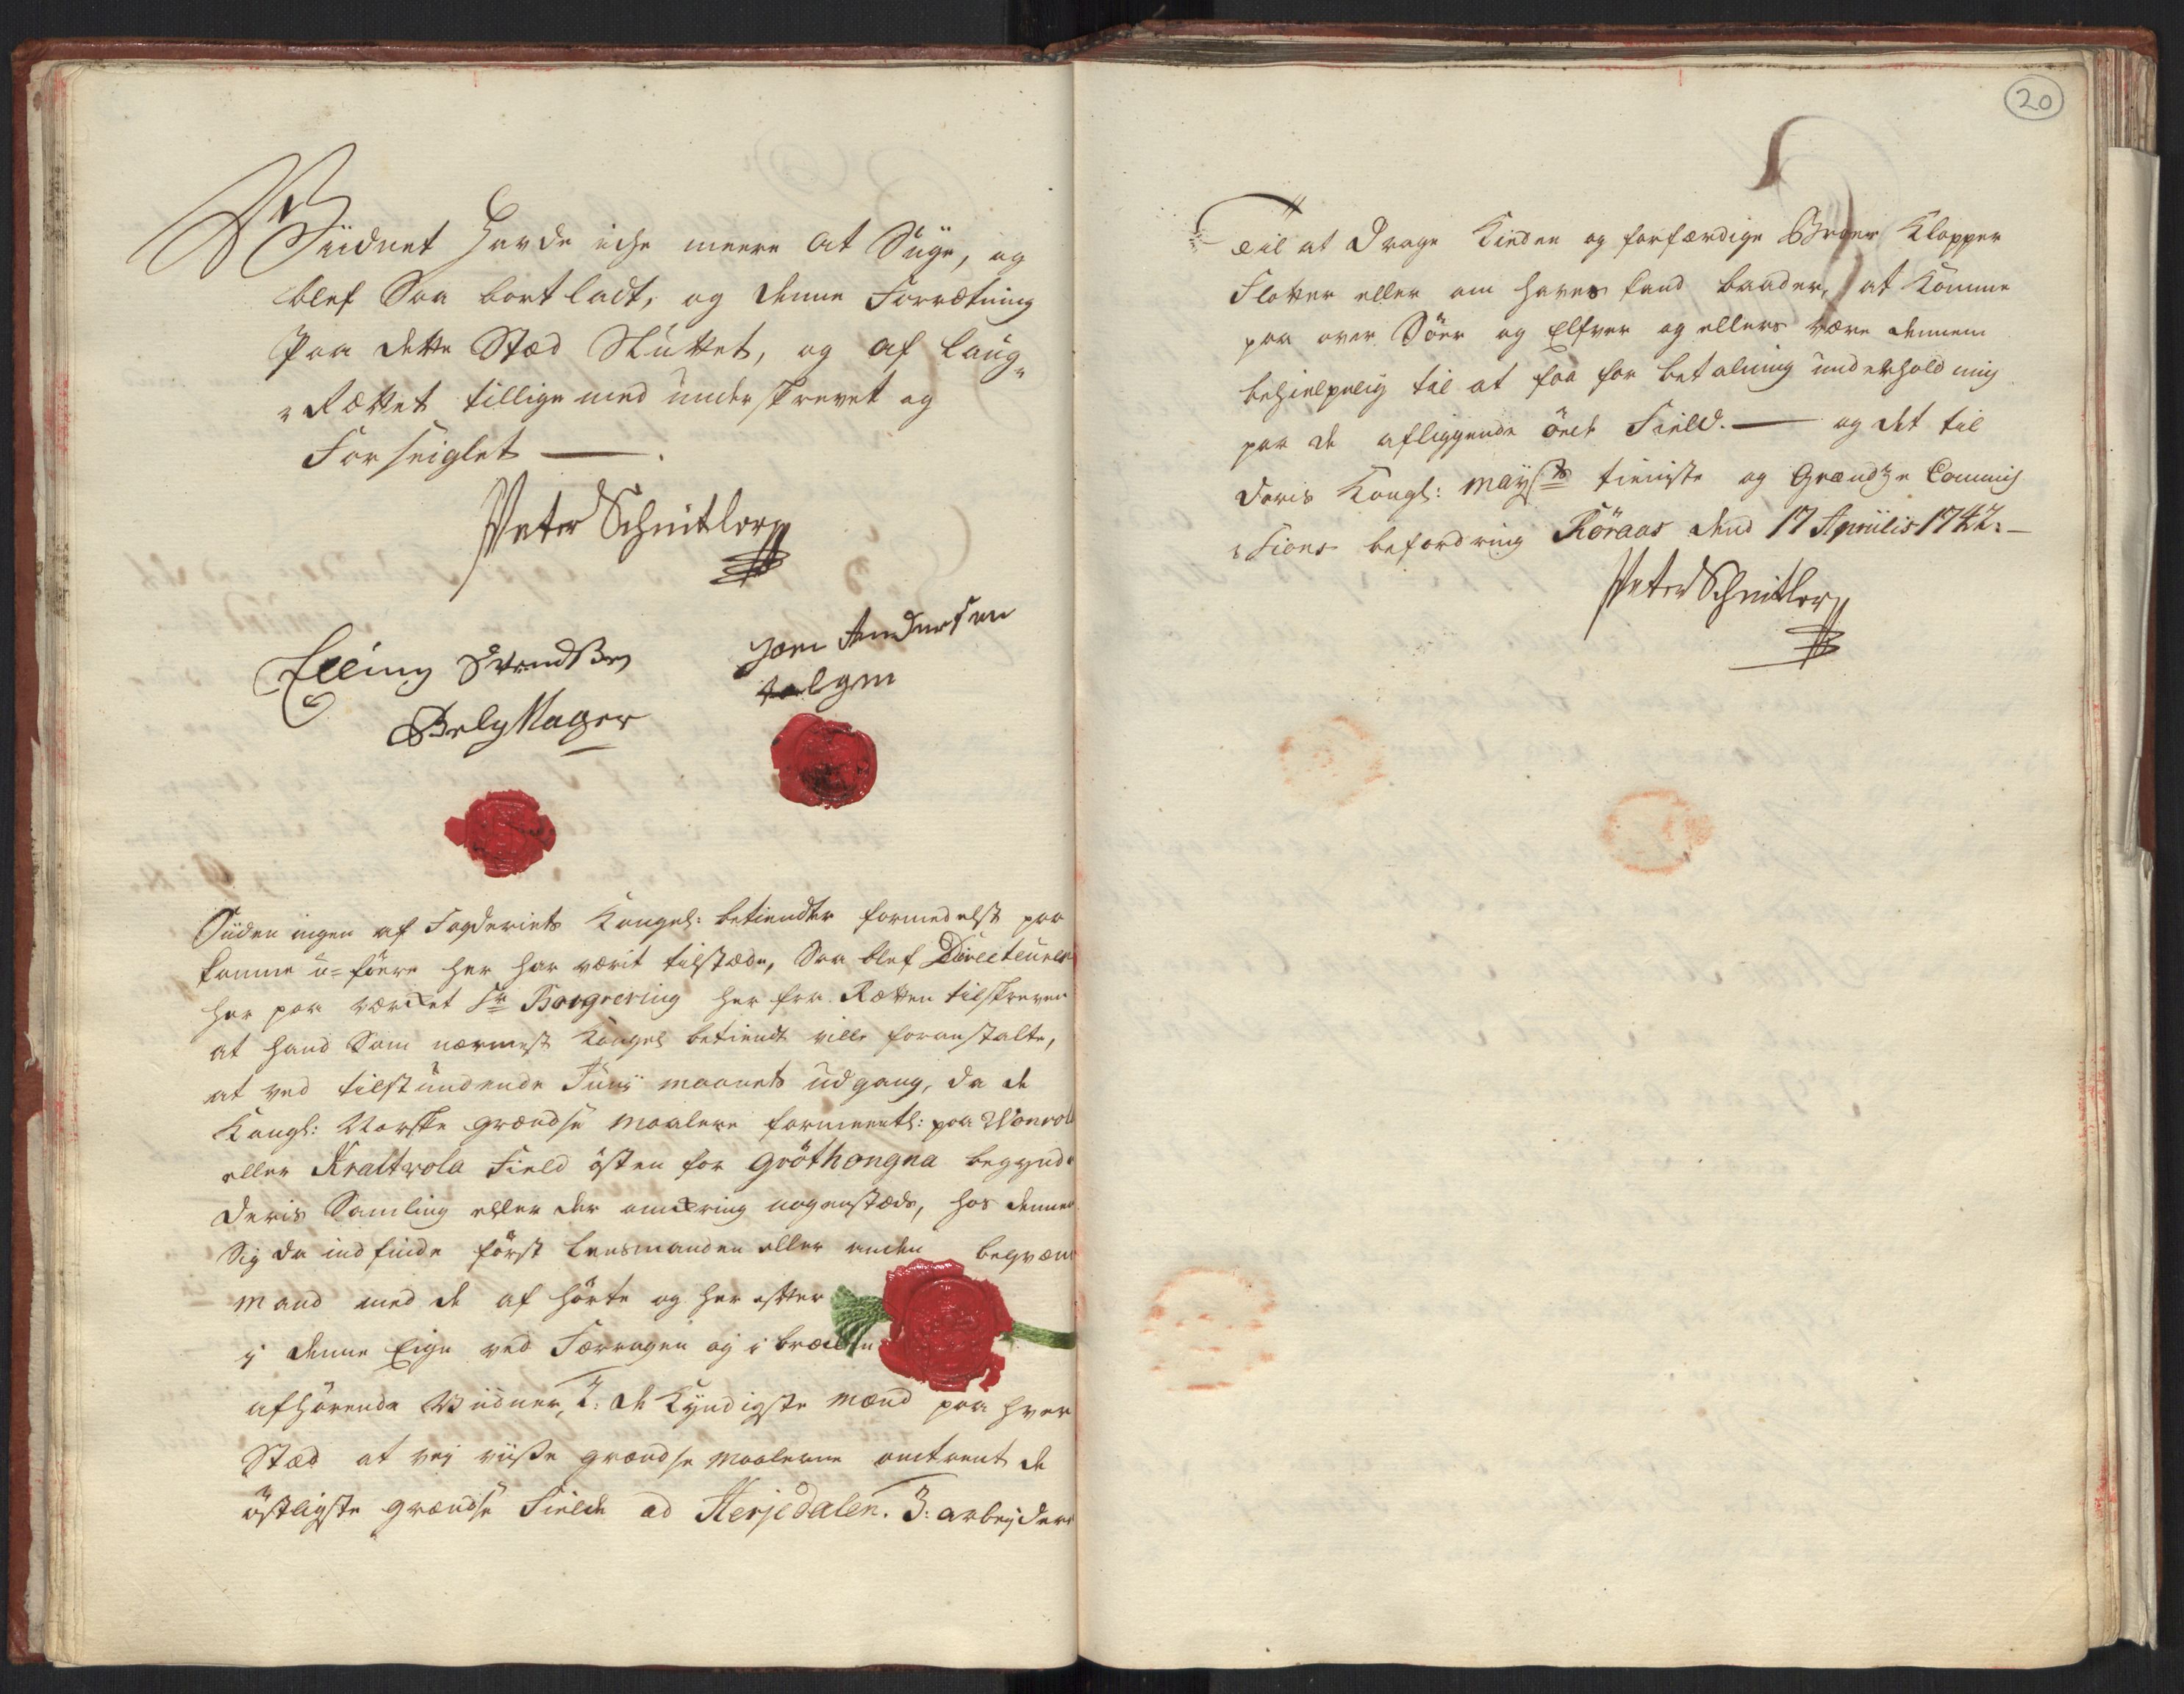 Viidnet Havde iche meere at Siige, og
blef Saa bortladt, og denne Forrætning
Paa dette Stæd Sluttet, og af Laug-
Rættet tillige med underskrevet og
Forseiglet —.
Peter Schnitler
Elling Svendsen
Jon Andersen
Galgen
Siiden ingen af Fogderiets Kongel: betiendter formedelst paa
komne u-føere her har værit tilstæde, Saa blef Directeuren
her paa værcket Sr Borgrewing her fra Rætten tilskreven
at hand Som nærmest Kongel betiendt ville foranstalte,
at ved tilstundende Junij maanets udgang, da de
Kongl: Norske grændse maalere formeentl: paa Vonvol
eller Kraltvola Field östen for Gröthongna begynde
deris Samling eller der omkring nogenstæds, hos dennem
Sig da indfinde först Lensmanden eller anden beqvæm
mand med de af hörte og her efter
i denne Eign ved Færragen og i bræcken
afhörende Viidner, 2: de kyndigste mænd paa hver
Stæd at vey viise grændse maalerne omtrent de
östligste grændse Fielde ad Herjedalen. 3: arbejdere
20
Til at drage Kieden og forfærdige Broer Klopper
Flotter eller om haves kand baader, at komme
paa over Söer og Elfver og ellers være dennem
behielpelig til at faa for betalning underholdning
paa de afliggende öede Field. — og det til
Deris Kongl: mayts tieniste og Grændtze Commis
sions befordring Röraas dend 17 Aprilis 1742. —
Peter Schnitler